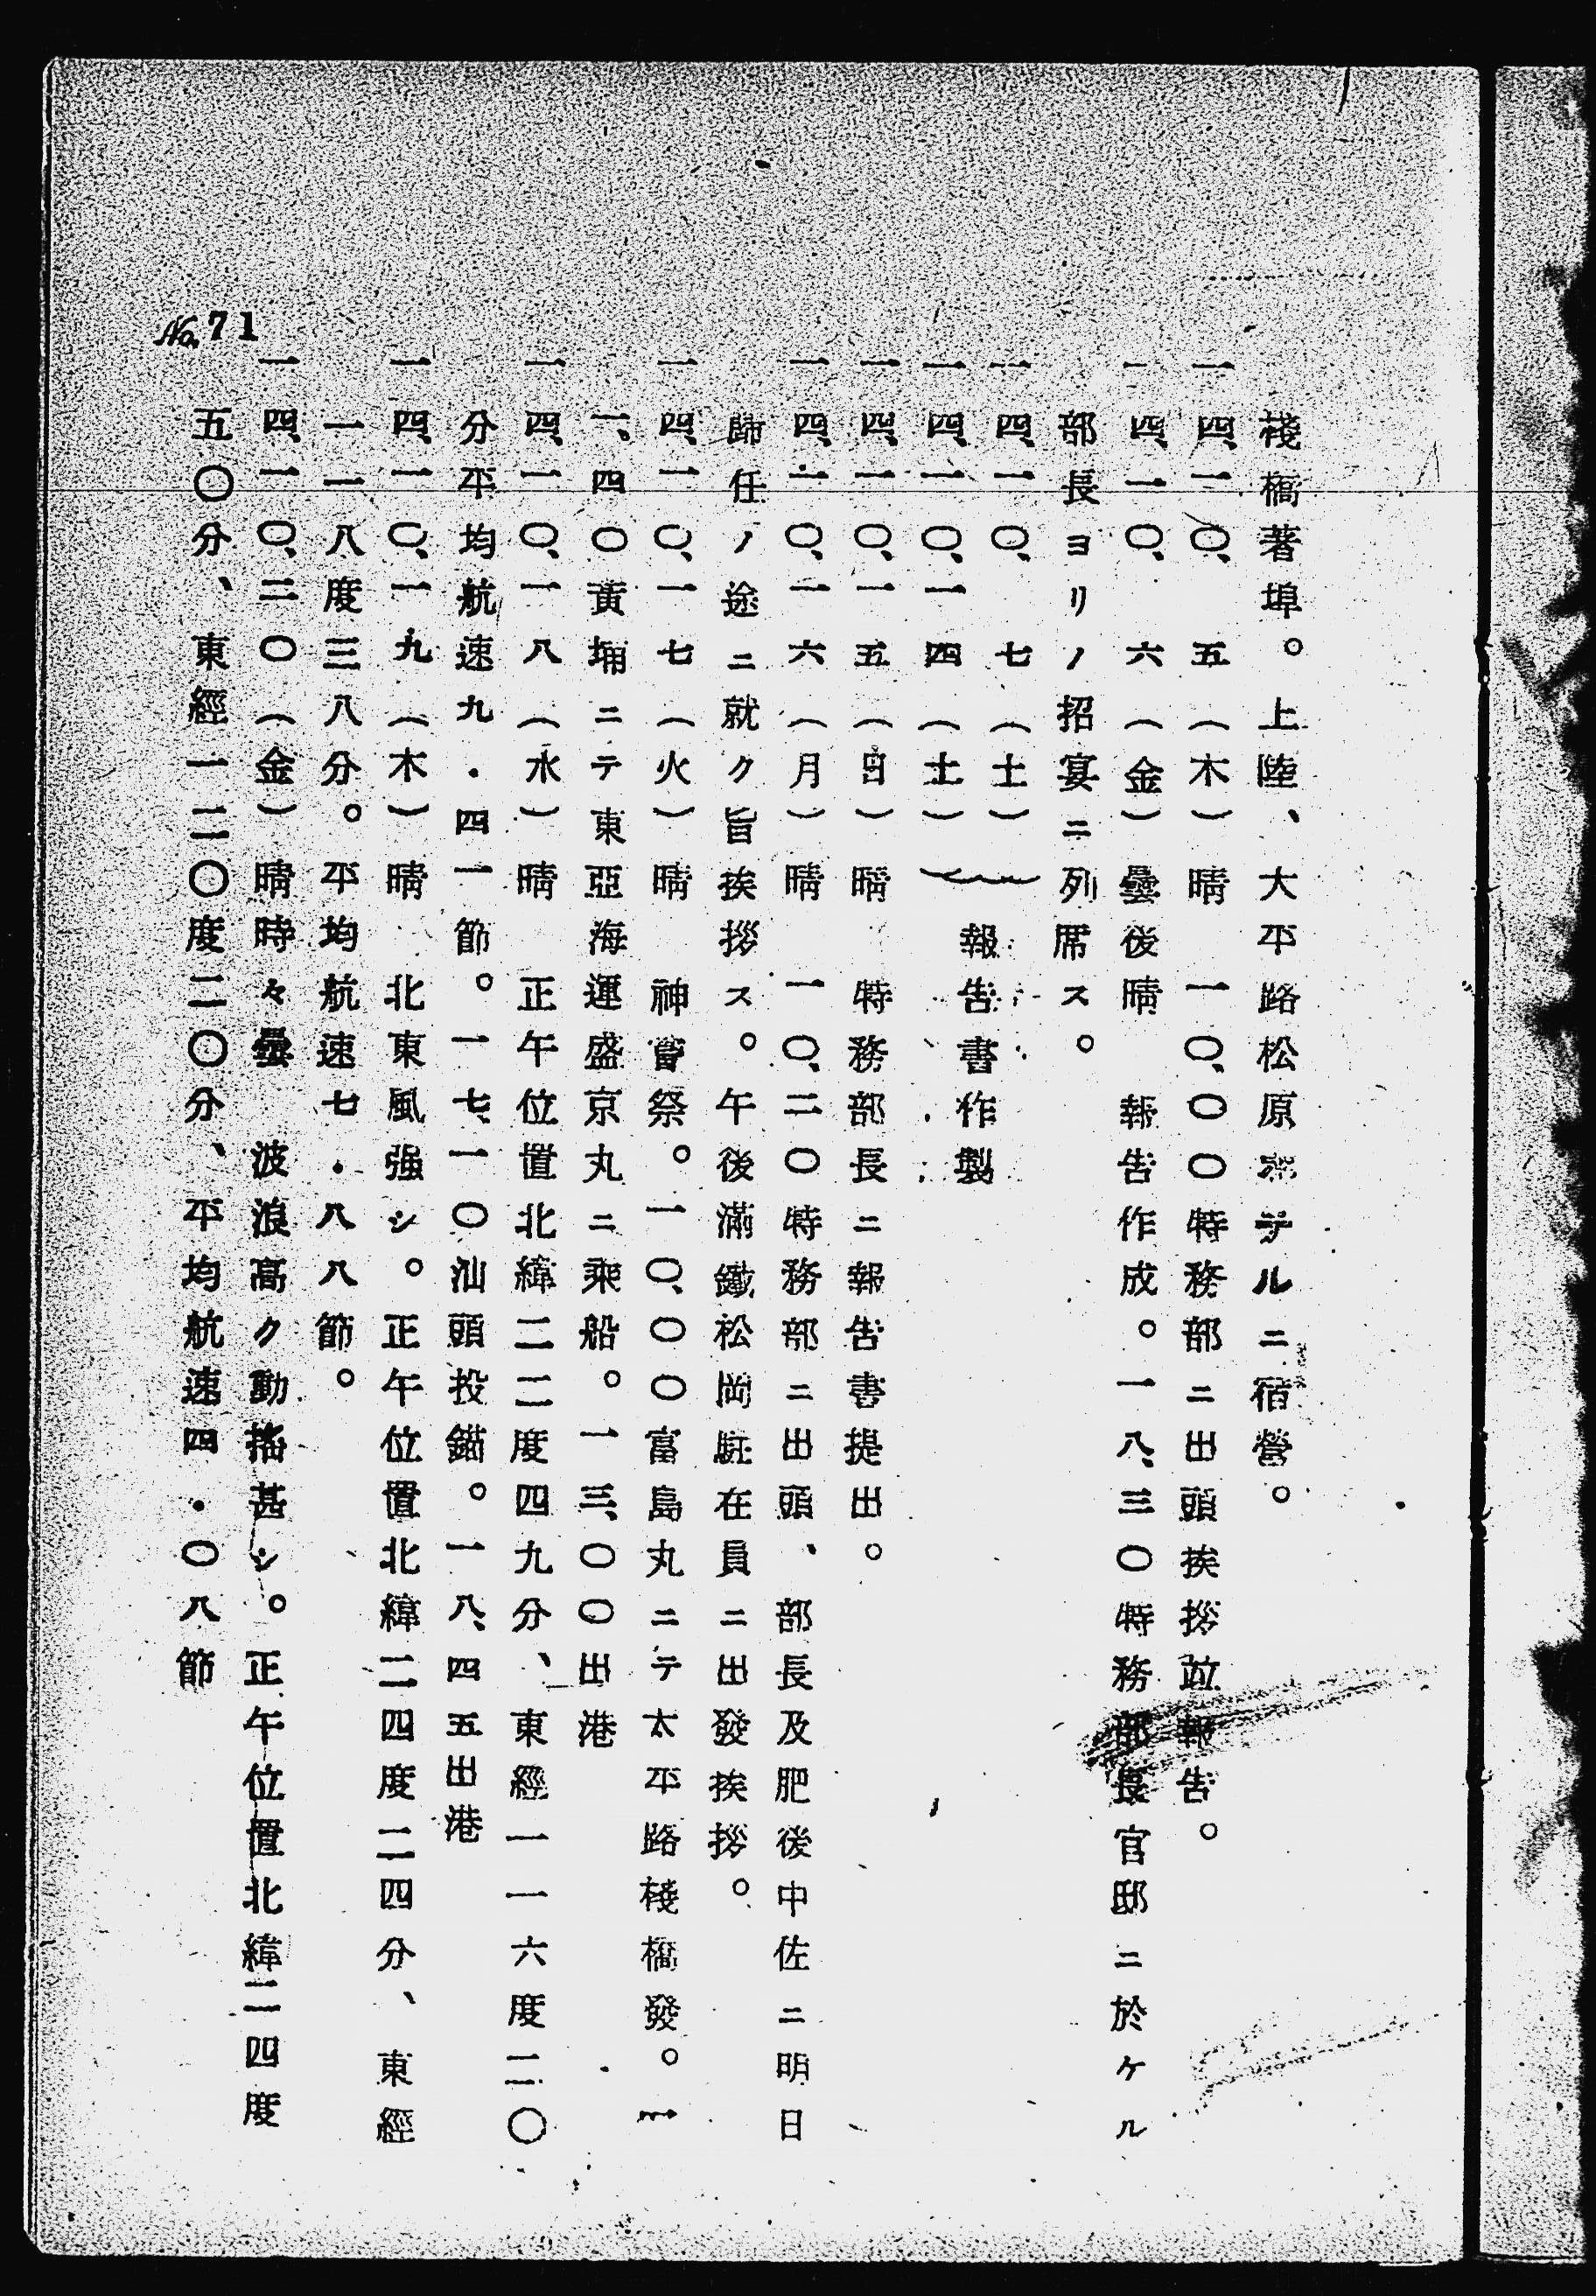 No. 71
棧橋著埠。上陸、大平路松原ホテルニ宿營。
一四、一〇、五（木）晴 一〇、〇〇特務部ニ出頭挨拶竝報告。
一四、一〇、六（金）曇後晴 報告作成。一八、三〇特務部長官邸ニ於ケル
部長ヨリノ招宴ニ列席ス。
一四、一〇、七（土）
一四、一〇、一四（土）
報告書作製
一四、一〇、一五（日）晴 特務部長ニ報告書提出。
一四、一〇、一六（月）晴 一〇、二〇特務部ニ出頭、部長及肥後中佐ニ明日
歸任ノ途ニ就ク旨挨拶ス。午後滿鐵松岡駐在員ニ出發挨拶。
一四、一〇、一七（火）晴 神嘗祭。一〇、〇〇富島丸ニテ太平路棧橋發。一
一、四〇黃埔ニテ東亞海運盛京丸ニ乘船。一三、〇〇出港
一四、一〇、一八（水）晴 正午位置北緯二二度四九分、東經一一六度二〇
分平均航速九．四一節。一七、一〇汕頭投錨。一八、四五出港
一四、一〇、一九（木）晴 北東風强シ。正午位置北緯二四度二四分、東經
一一八度三八分。平均航速七．八八節。
一四、一〇、二〇（金）晴時々曇 波浪高ク動搖甚シ。正午位置北緯二四度
五〇分、東經一二〇度二〇分、平均航速四．〇八節